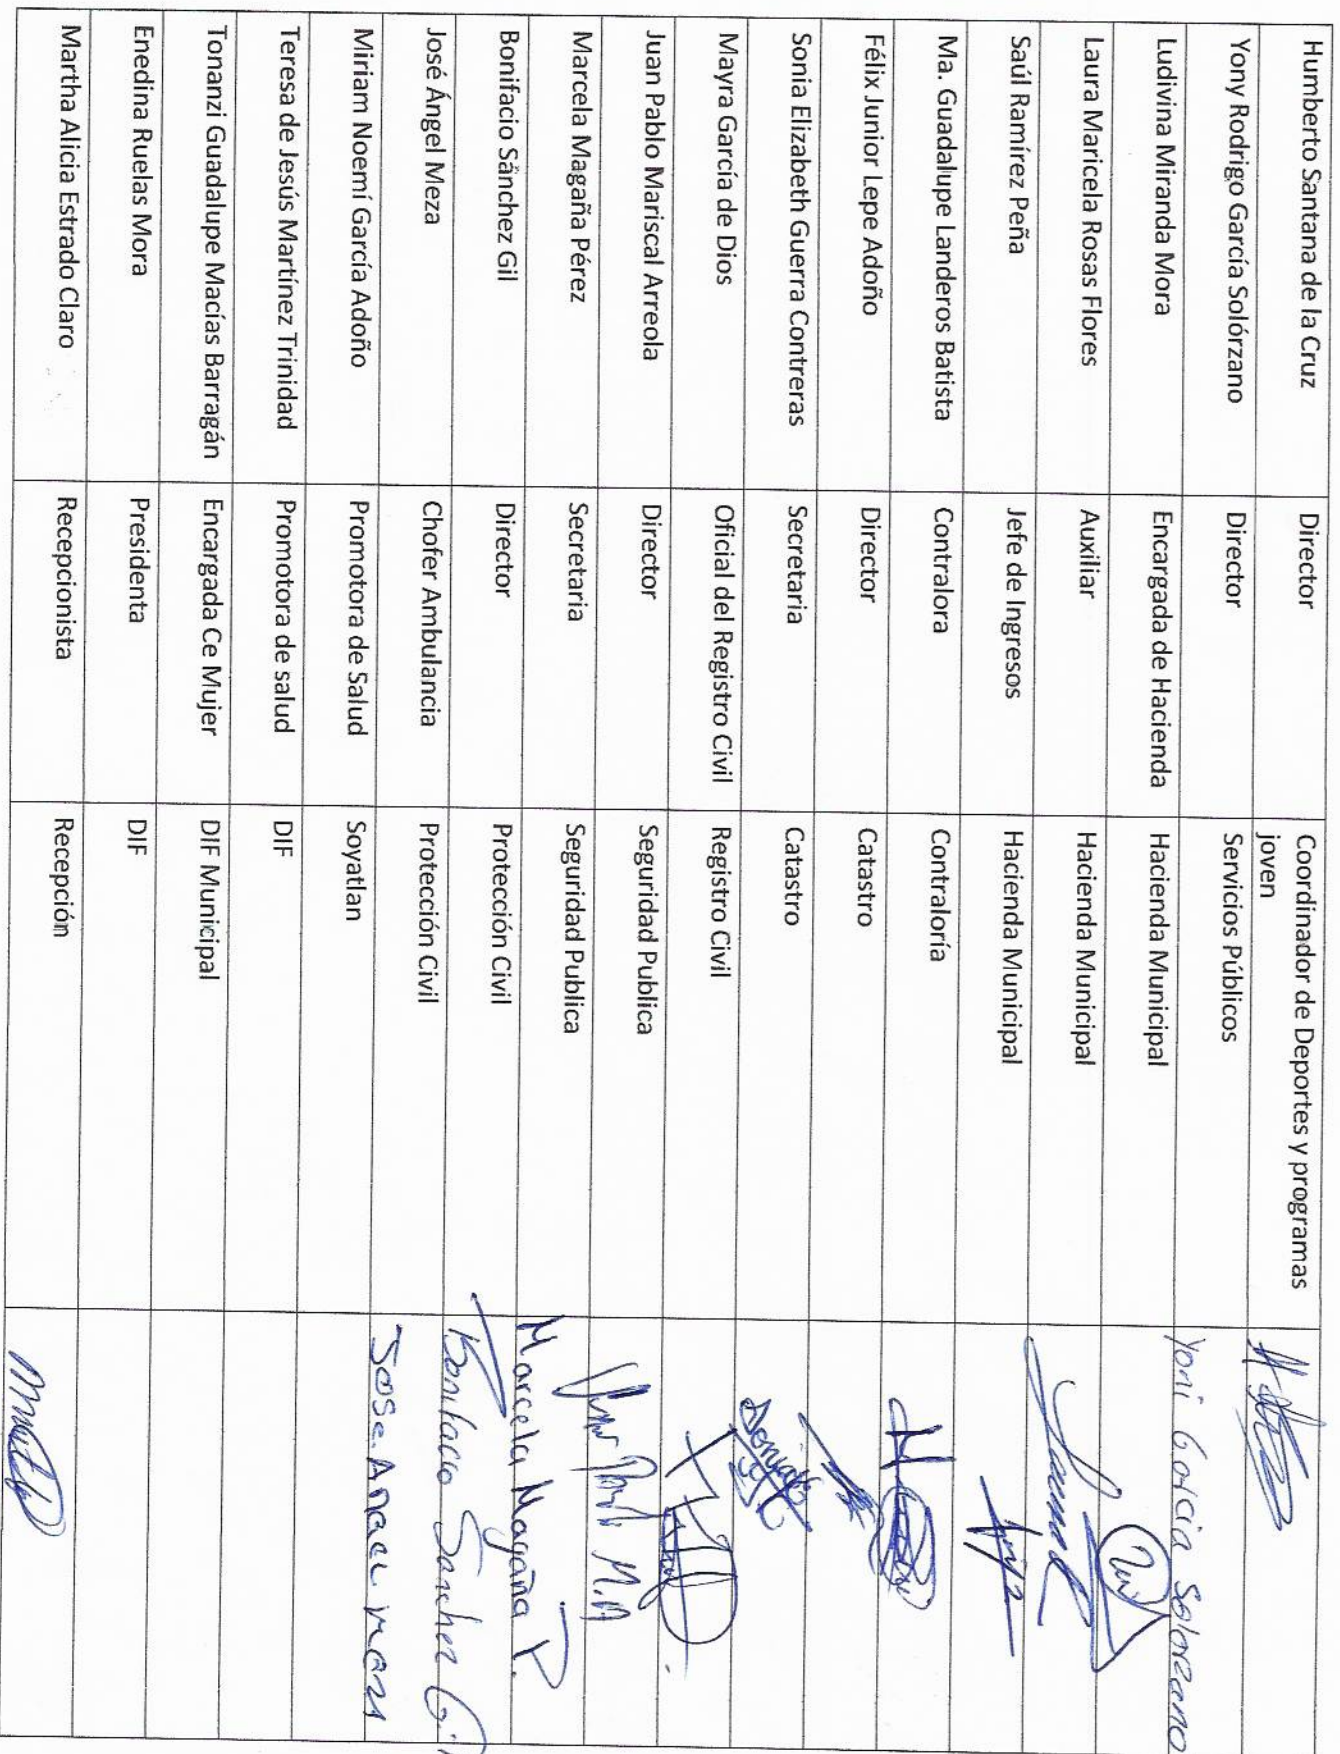 Humberto Santana de la Cruz Director Coordinador de Deportes y programas
joven
Yony Rodrigo García Solórzano Director Servicios Públicos Yoni Garcia Solorzano
Ludivina Miranda Mora Encargada de Hacienda Hacienda Municipal
Laura Maricela Rosas Flores Auxiliar Hacienda Municipal
Saúl Ramírez Peña Jefe de Ingresos Hacienda Municipal
Ma. Guadalupe Landeros Batista Contralora Contraloría
Félix Junior Lepe Adoño Director Catastro
Sonia Elizabeth Guerra Contreras Secretaria Catastro
Mayra García de Dios Oficial del Registro Civil Registro Civil
Juan Pablo Mariscal Arreola Director Seguridad Publica
Marcela Magaña Pérez Secretaria Seguridad Publica Marcela Magaña P.
Bonifacio Sánchez Gil Director Protección Civil Bonifacio Sanchez
José Ángel Meza Chofer Ambulancia Protección Civil Jose. Angel
Miriam Noemí García Adoño Promotora de Salud Soyatlan
Teresa de Jesús Martínez Trinidad Promotora de salud DIF
Tonanzi Guadalupe Macías Barragán Encargada Ce Mujer DIF Municipal
Enedina Ruelas Mora Presidenta DIF
Martha Alicia Estrado Claro Recepcionista Recepción